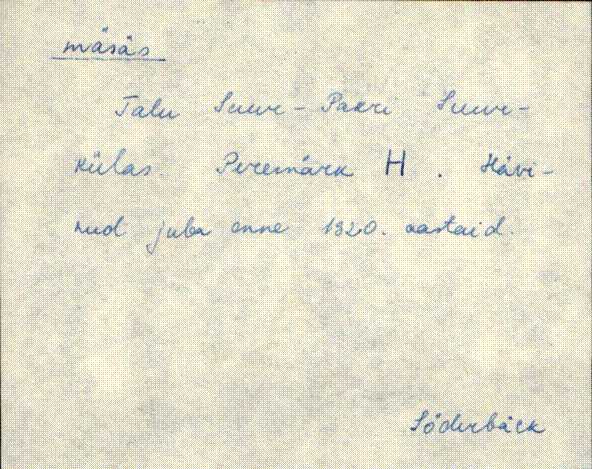 mäsäs
Talu Suur-Pakri Suur-
külas. Peremärk H. Hävi-
nud juba enne 1920. aastaid.
Söderbäck